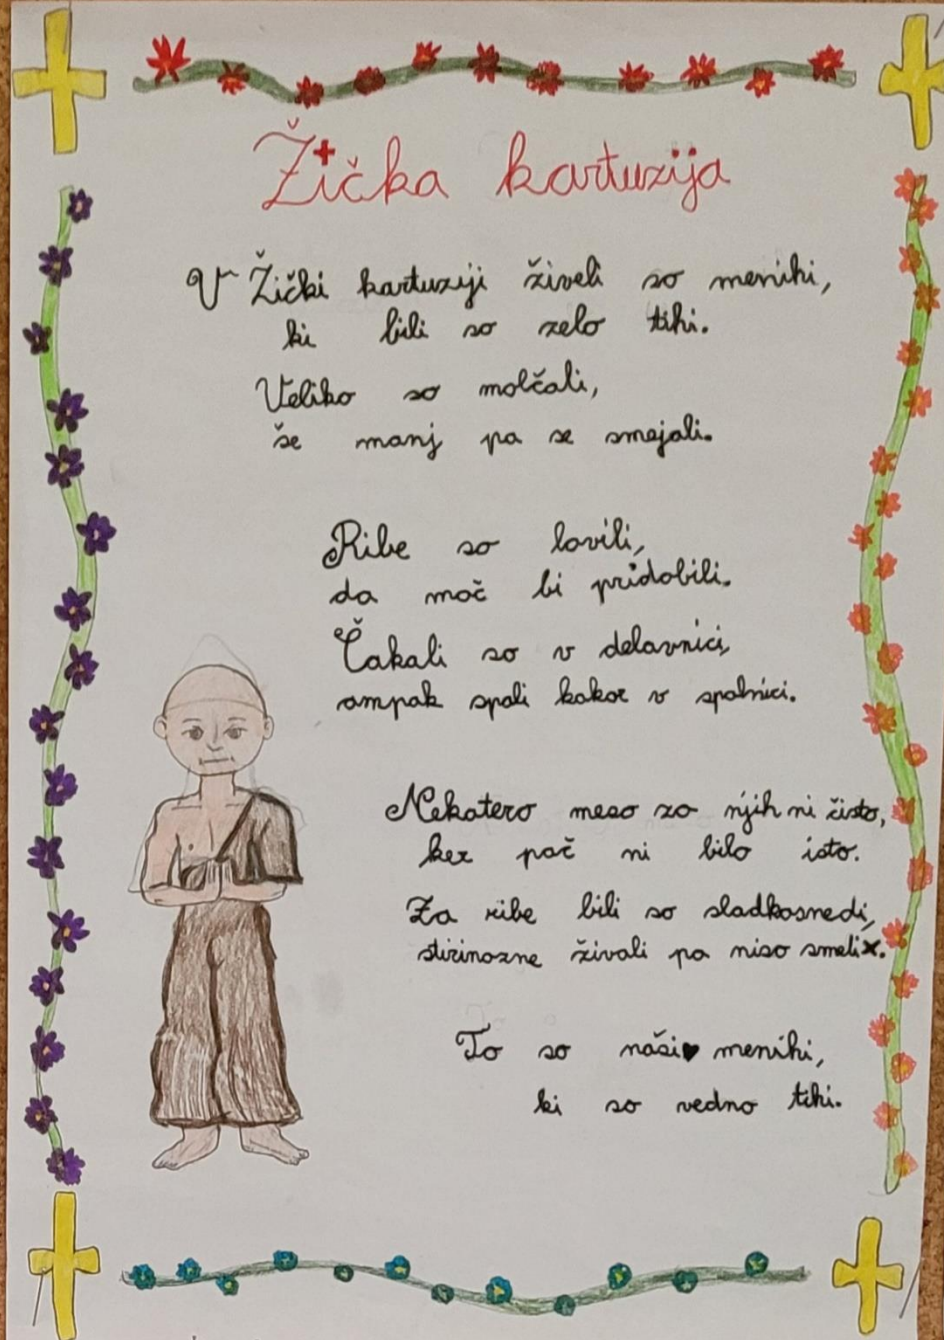 Žička kartuzija
V Žički kartuziji živeli so menihi,
ki bili so zelo tihi.
Veliko so molčali,
še manj pa se smejali.
Ribe so lovili,
da moč bi pridobili.
Čakali so v delavnici,
ampak spali kakor v spalnici.
Nekatero meso za njih ni čisto,
ker pač ni bilo isto.
Za ribe bili so sladkosnedi,
stirinozne živali pa niso smeli.
To so naši♥ menihi,
ki so vedno tihi.